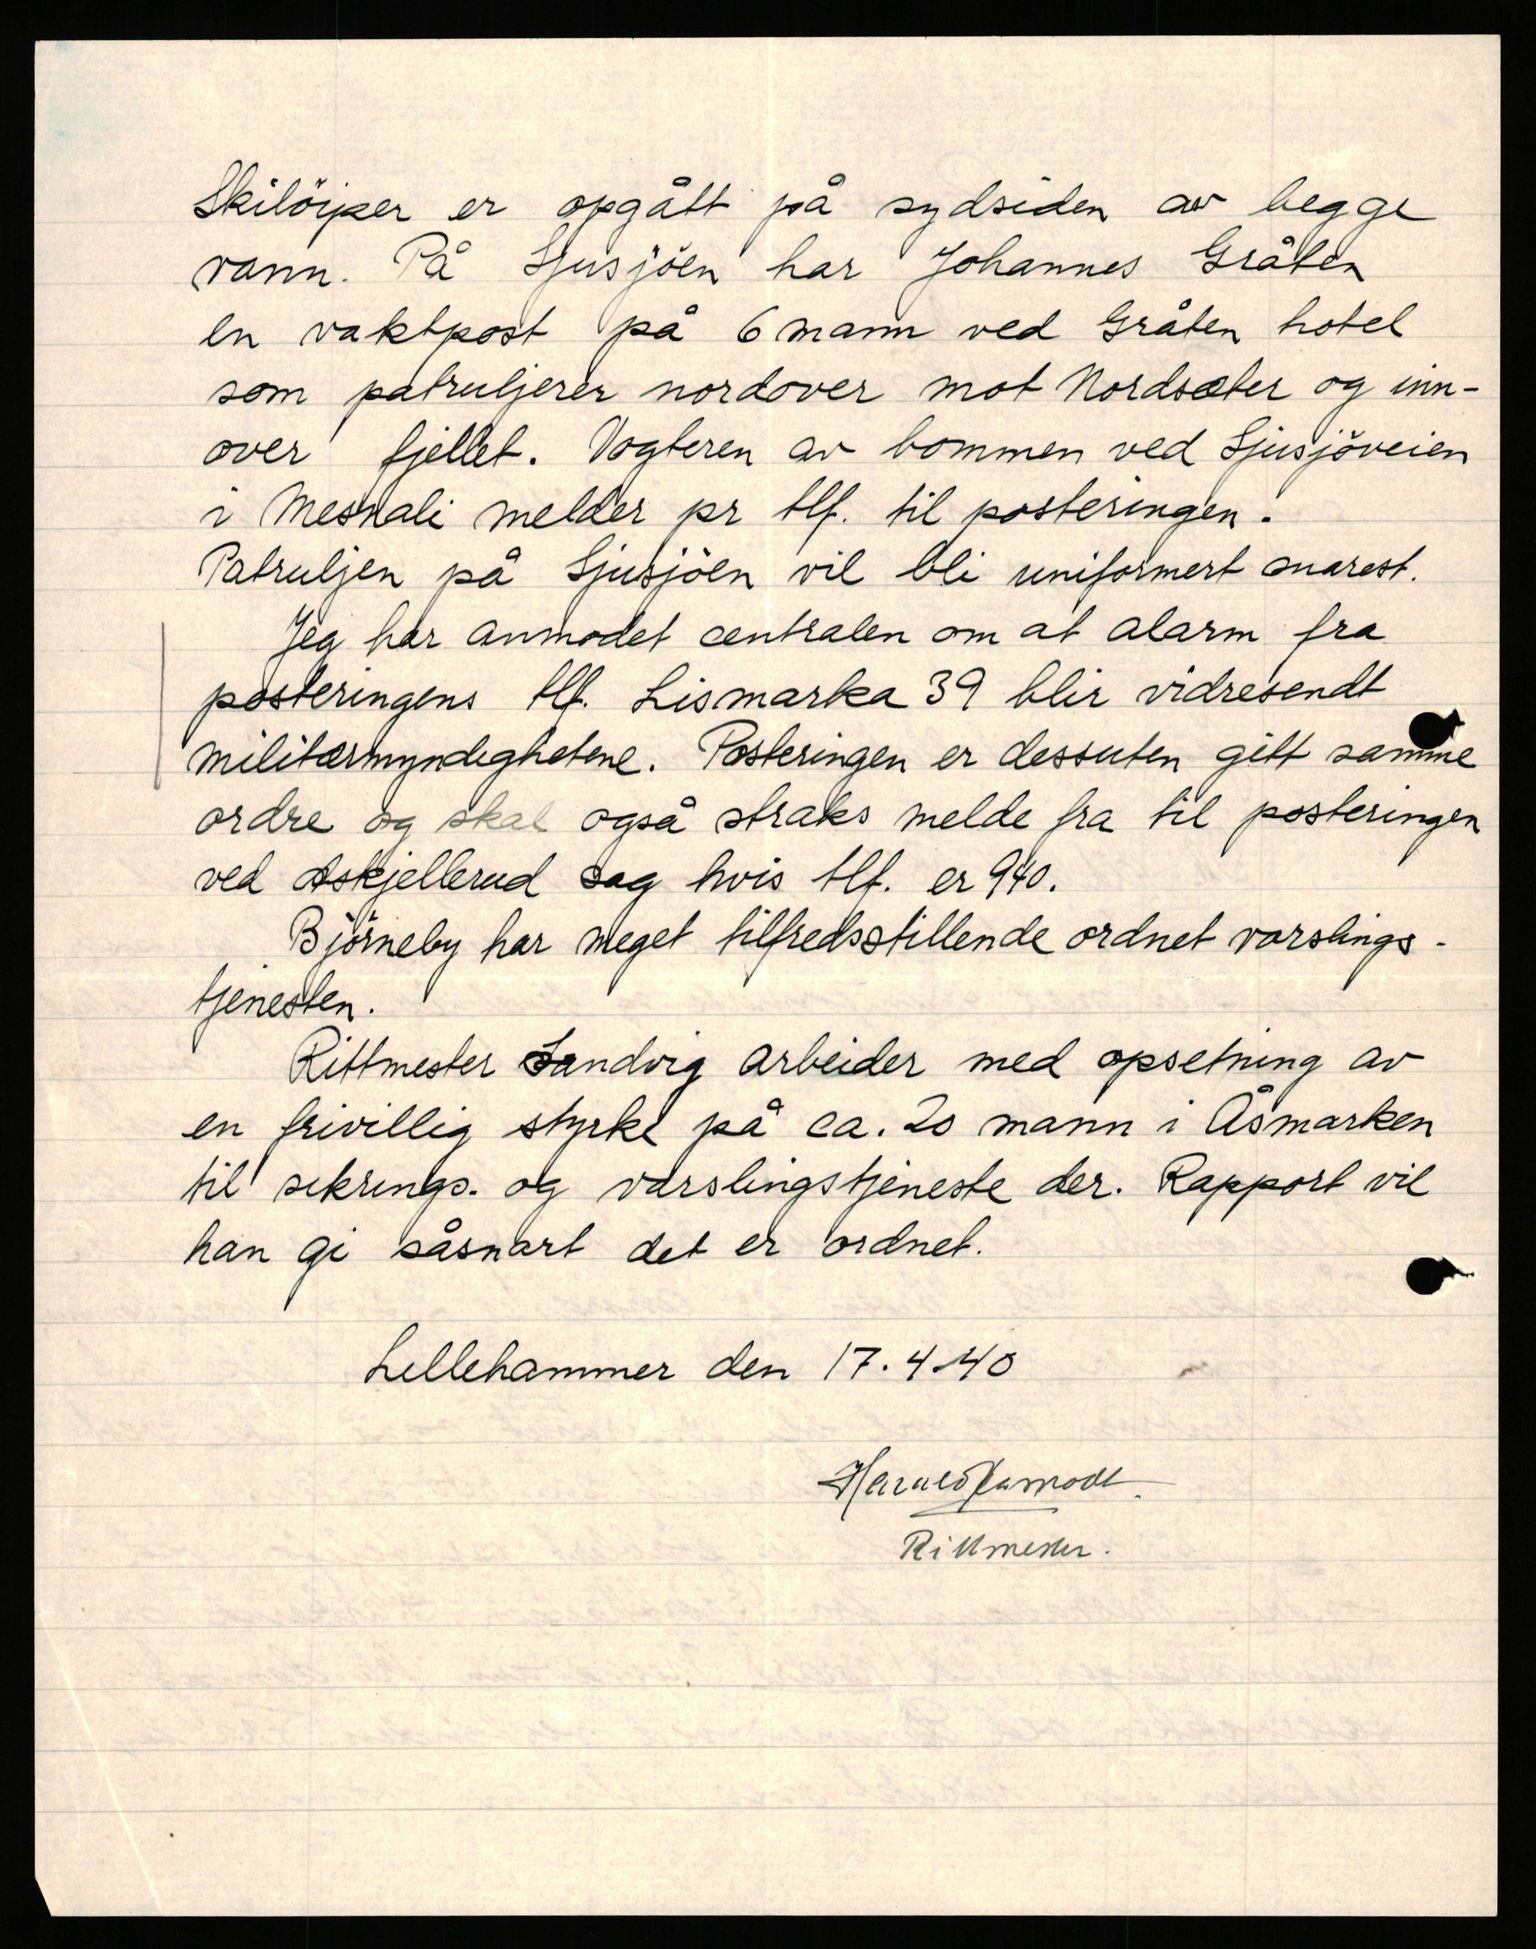 Skilöiper er opgått på sydsiden av begge
vann. På Sjusjöen har Johannes Gråten
en vaktpost på 6 mann ved Gråten hotel
som patruljerer nordover mot Nordsæter og inn-
over fjellet. Vogteren av bommen ved Sjusjöveien
i Mesnali melder pr tlf. til posteringen.
Patruljen på Sjusjöen vil bli uniformert snarest.
Jeg har anmodet centralen om at alarm fra
posteringens tlf. Lismarka 39 blir vidresendt
militærmyndighetene. Posteringen er dessuten gitt samme
ordre og skal også straks melde fra til posteringen
ved Askjellerud sag hvis tlf. er 940.
Björneby har meget tilfredsstillende ordnet varslings-
tjenesten.
Rittmester Sandvig arbeider med opsetning av
en frivillig styrke på ca. 20 mann i Åsmarken
til sikrings- og varslingstjeneste der. Rapport vil
han gi såsnart det er ordnet.
Lillehammer den 17.4.40
Harald
Rittmester.